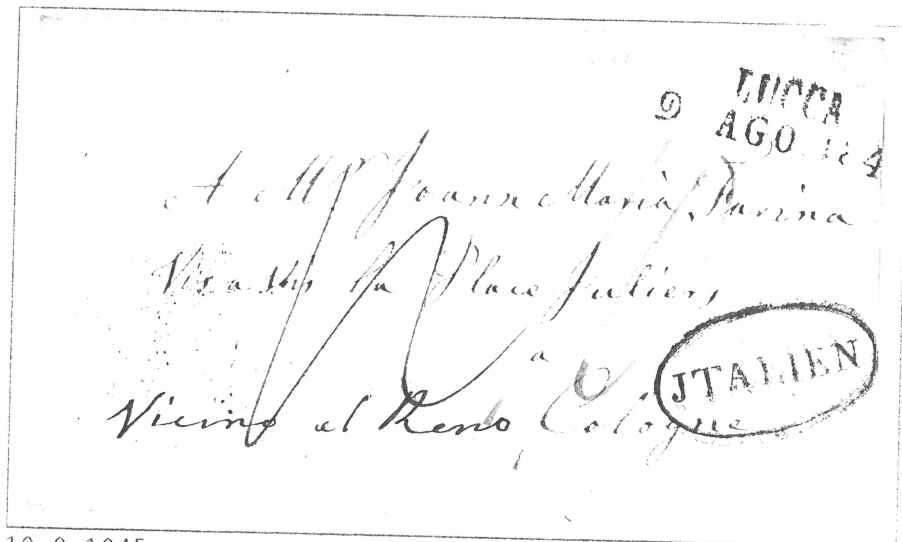 LUCCA
9 AGO
A Mr Joann Maria Farina
Vis a Vis La Place Juliers
a
JTALIEN
Vicino al Reno Cologne